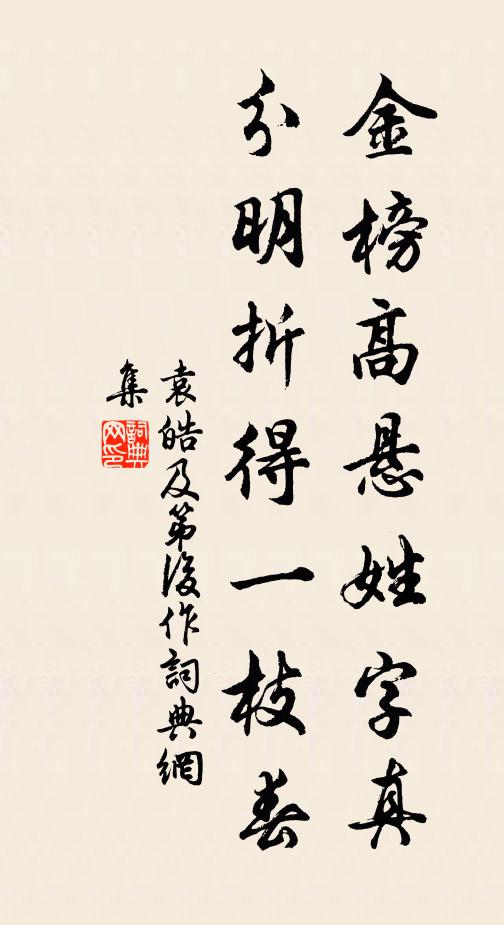 金榜高悬姓字真
分明折得一枝春
袁皓及第後作詞典網
集
詞典
网印